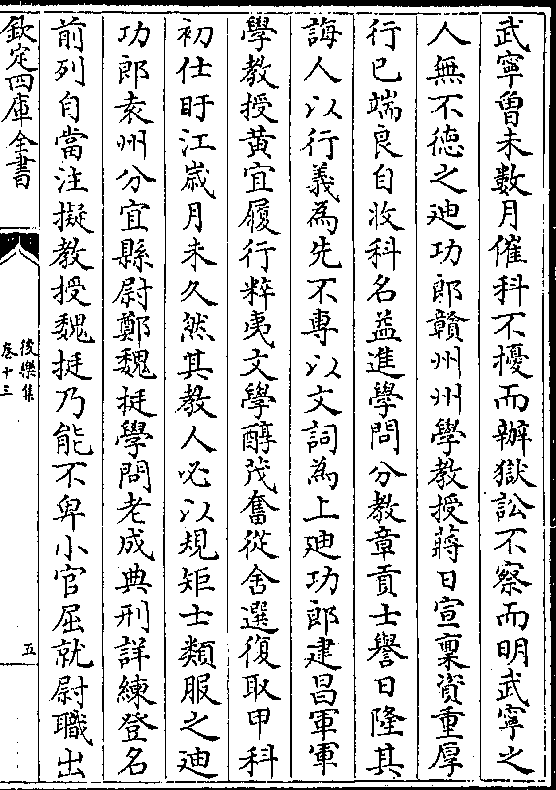 武寧曾未數月催科不擾而辦獄訟不察而明武寧之
人無不德之廸功郎贛州州學教授蔣日宣稟資重厚
行已端良自收科名益進學問分教章貢士譽日隆其
誨人以行義為先不專以文詞為上廸功郎建昌軍軍
學教授黃宜履行粹夷文學醇茂奮從舍選復取甲科
初仕盱江歲月未久然其教人必以規矩士類服之廸
功郎袁州分宜縣尉鄭魏挺學問老成典刑詳練登名
前列自當注擬教授魏挺乃能不卑小官屈就尉職出
欽定四庫全書
後樂集
卷十三
五